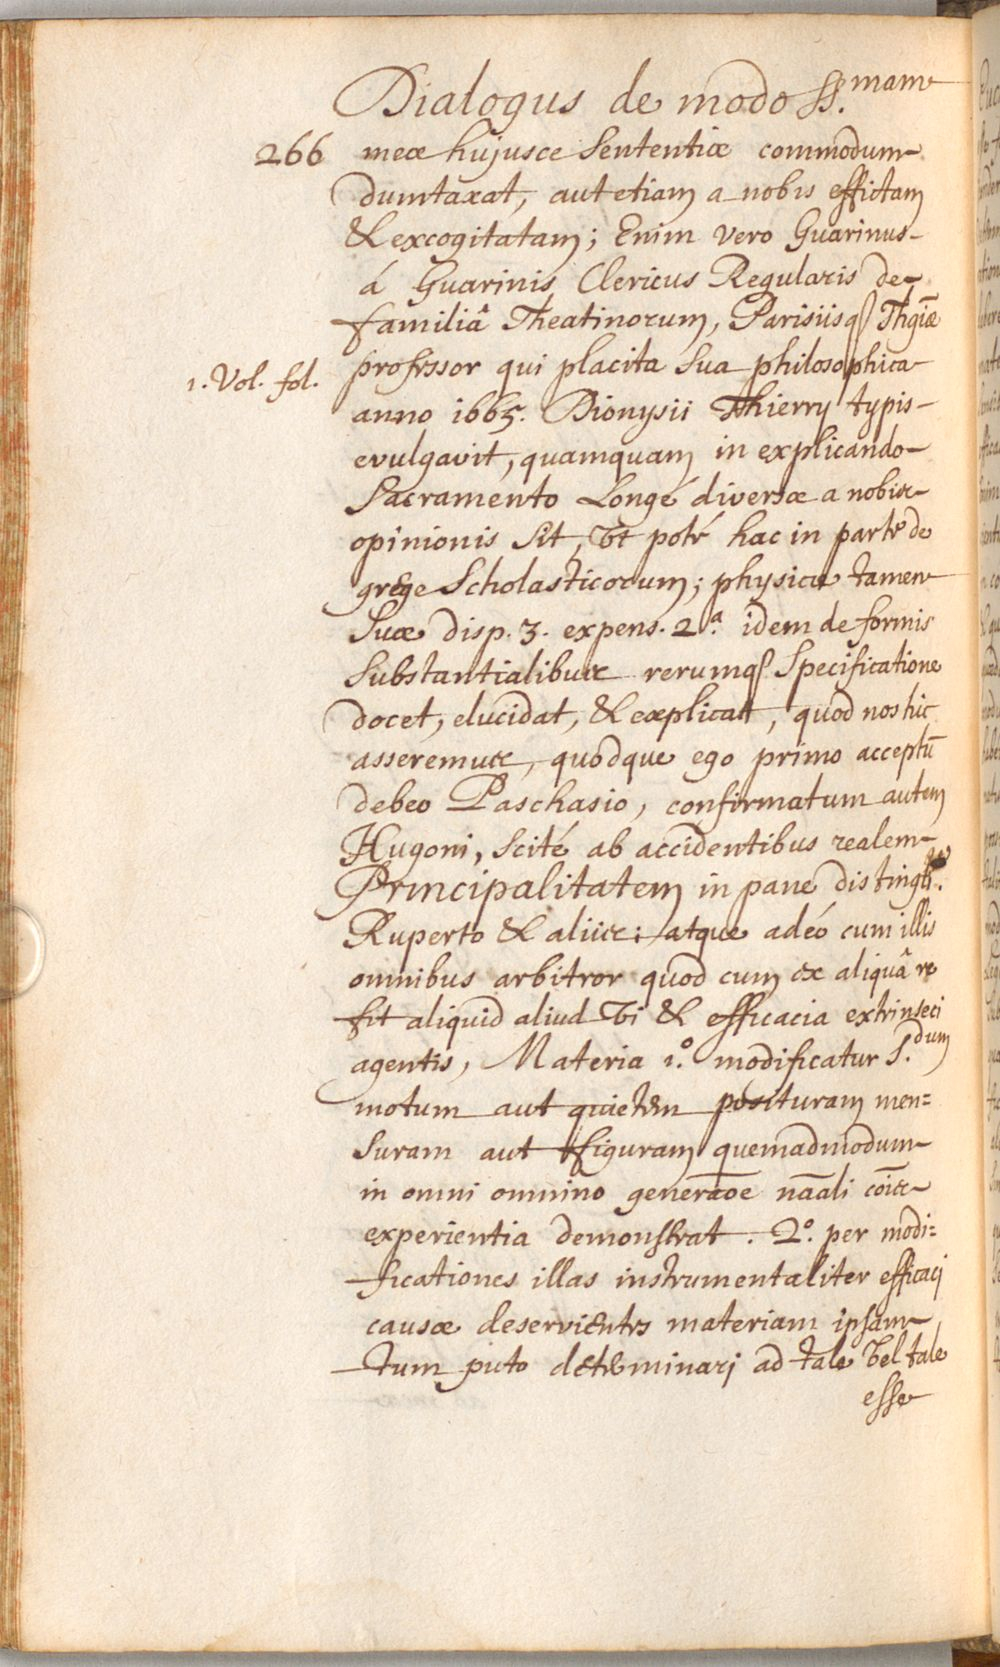 Dialogus de modo SS.mam
266 meæ hujusce Sententiæ commodum
dumtaxat, aut etiam a nobis effictam
& excogitatam; Enim vero Guarinus
á Guarinis Clericus Regularis de
familiâ Theatinorum, Parisiisq Thgiæ
1. Vol. fol. professor qui placita sua philosophica
anno 1665. Dionysii Thierry typis
evulgavit, quamquam in explicando
Sacramento Longé diversæ a nobis
opinionis sit, Vt poté hac in parte de
grege Scholasticorum; physicæ tamen
suæ disp. 3. expens. 2ª. idem de formis
substantialibus rerumq Specificatione
docet, elucidat, & explicat, quod nos hic
asseremus, quodque ego primo acceptū
debeo Paschasio, confirmatum autem
Hugoni, Scité ab accidentibus realem
Principalitatem in pane
Ruperto & aliis: atque adéo cum illis
omnibus arbitror quod cum ex aliquâ re
fit aliquid aliud Vi & efficacia extrinseci
agentis, Materia 1.º modificatur S.dum
motum aut quietem posituram men=
suram aut figuram quemadmodum
in omni omnino generãoe nãali cõis
experientia demonstrat. 2º. per modi=
ficationes illas instrumentaliter efficaci
causæ deservientes materiam ipsam
tum puto determinari ad tale Vel tale
esse